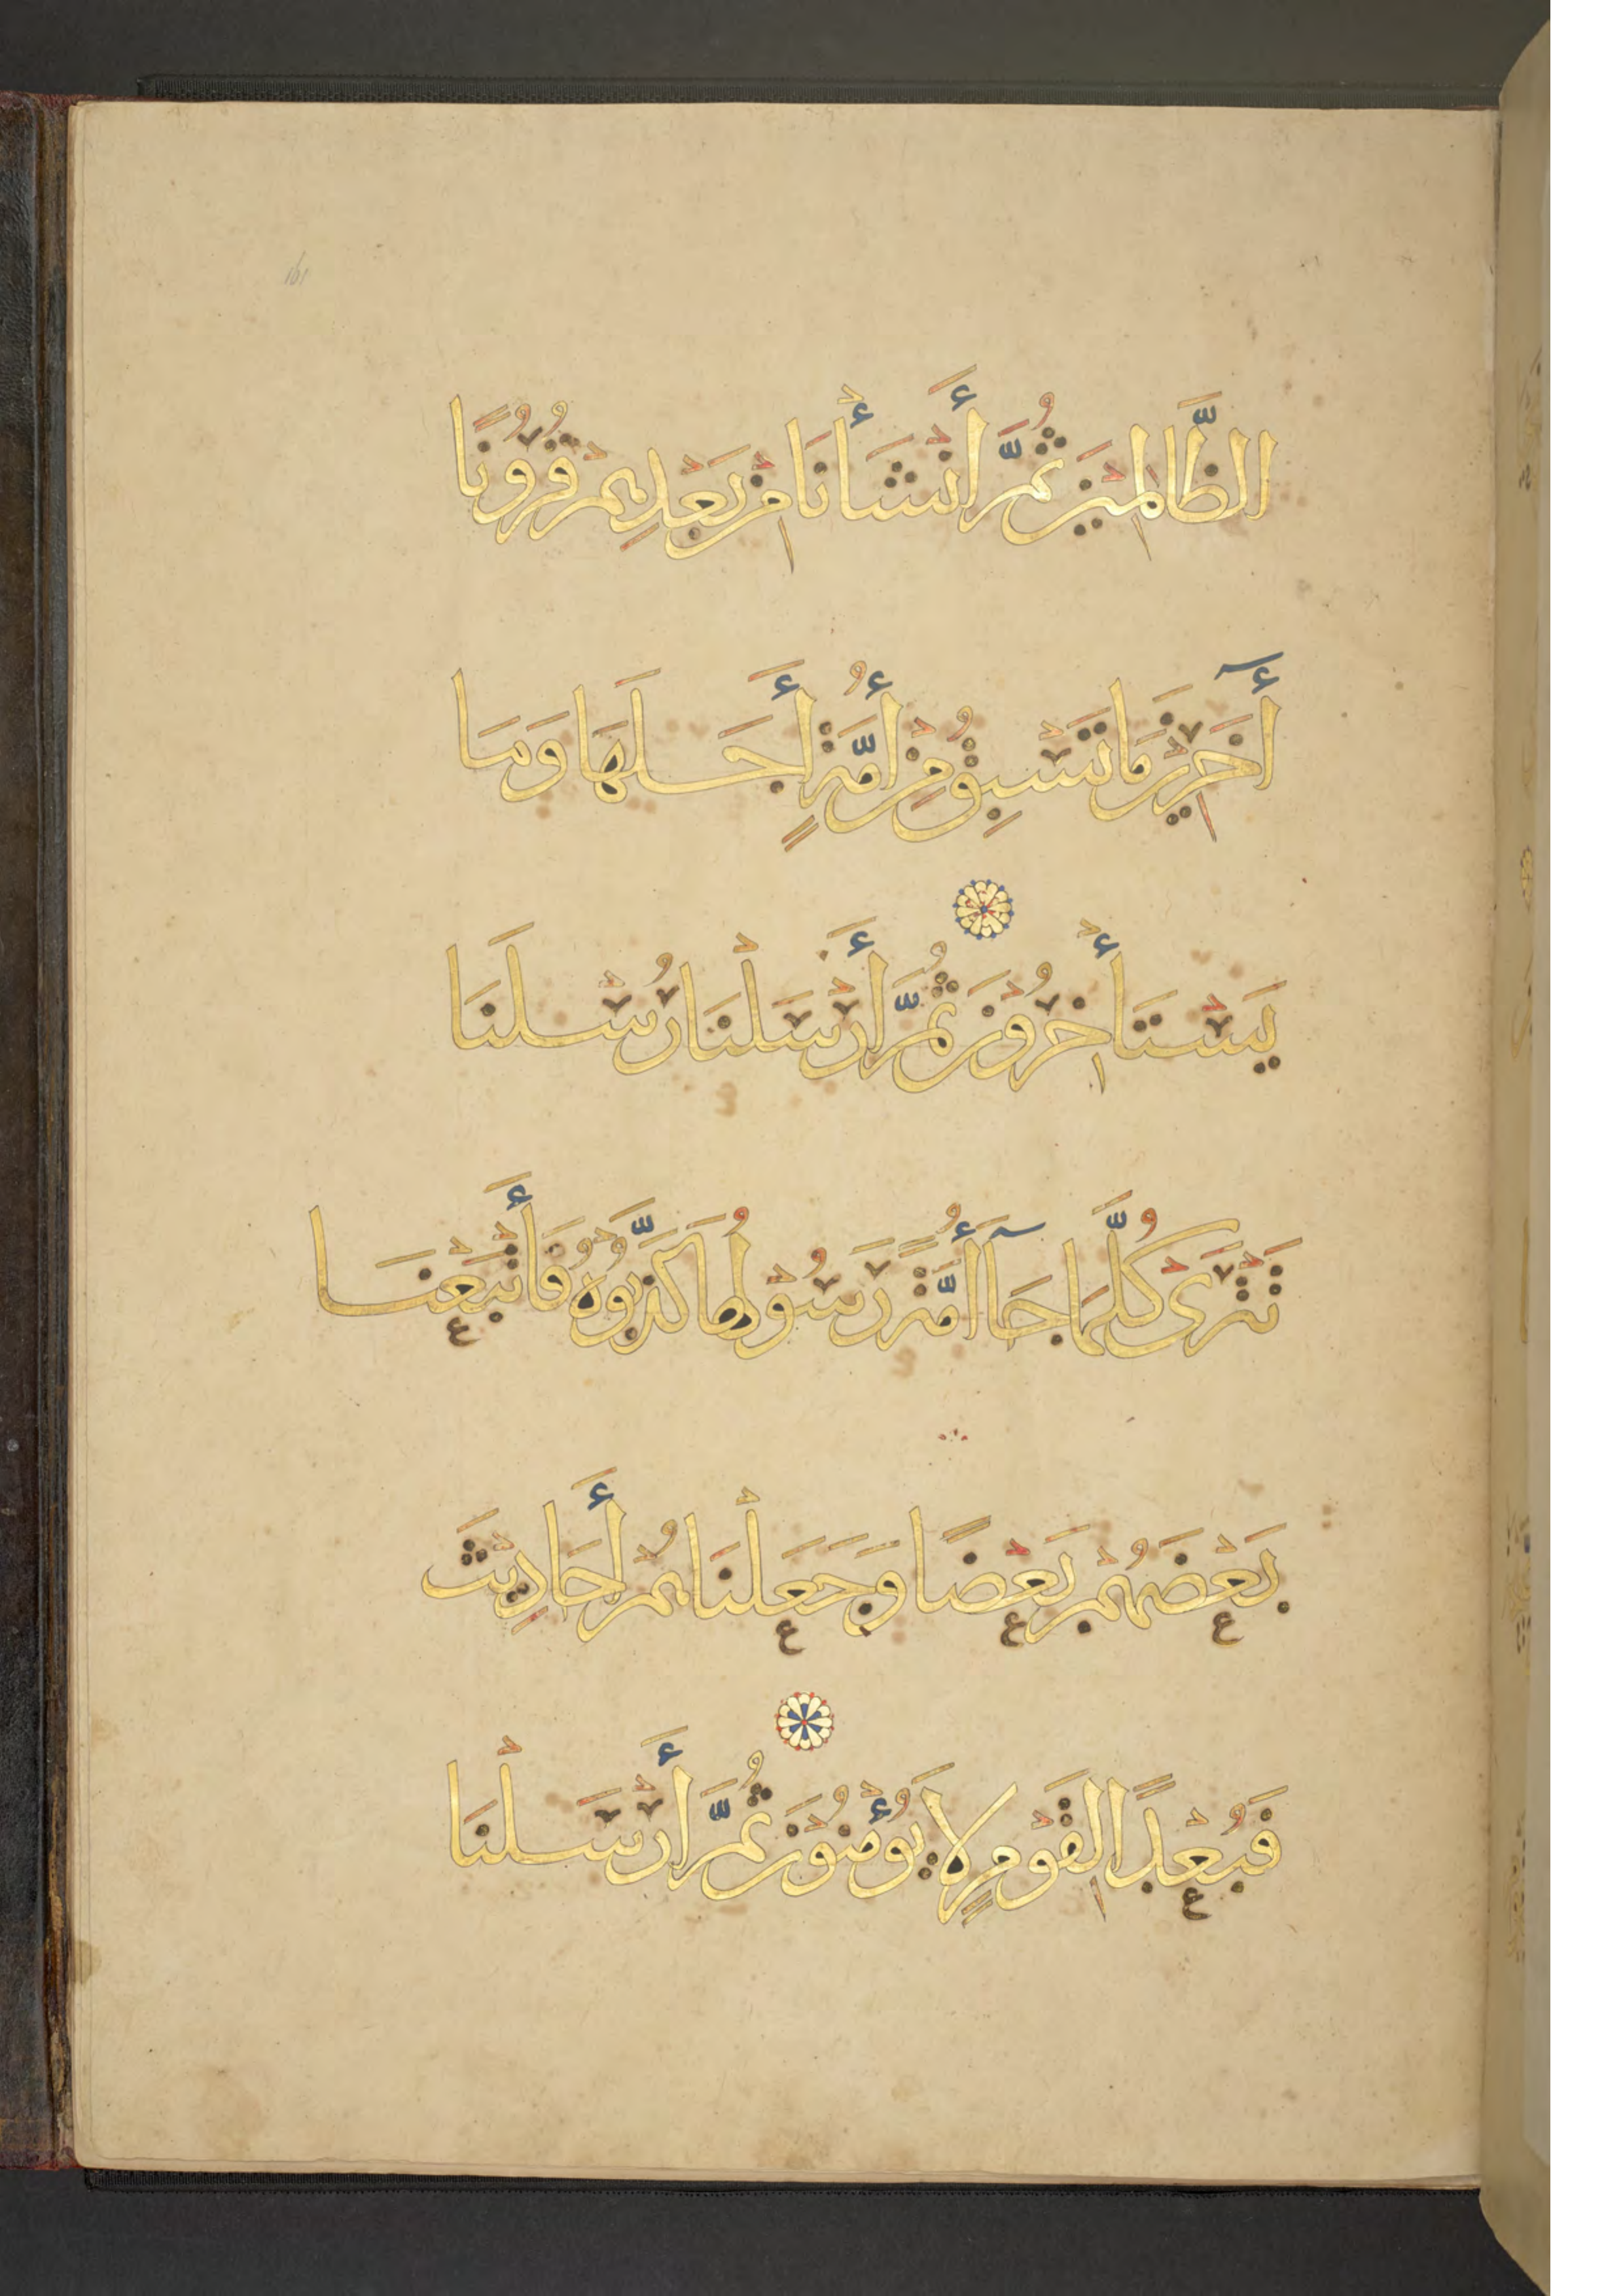 الظَّالِمِيْنَ ثُمَّ أَنْشَأْنَا مِنْ بَعْدِهِمْ قُرُوْنًا
أٓخَرِيْنَ مَا تَسْبِقُ مِنْ أُمَّةٍ أَجَلَهَا وَمَا
يَسْتَأْخِرُوْنَ ثُمَّ أَرْسَلْنَا رُسُلَنَا
تَتْرَىْ كُلَّمَا جَآءَ أُمَّةً رَسُوْلُهَا كَذَّبُوْهُ فَأَتْبَعْنَا
بَعْضَهُمْ بَعْضًا وَجَعَلْنَاهُمْ أَحَادِيْثَ
فَبُعْدًا لِقَوْمٍ لَا يُؤْمِنُوْنَ ثُمَّ أَرْسَلْنَا